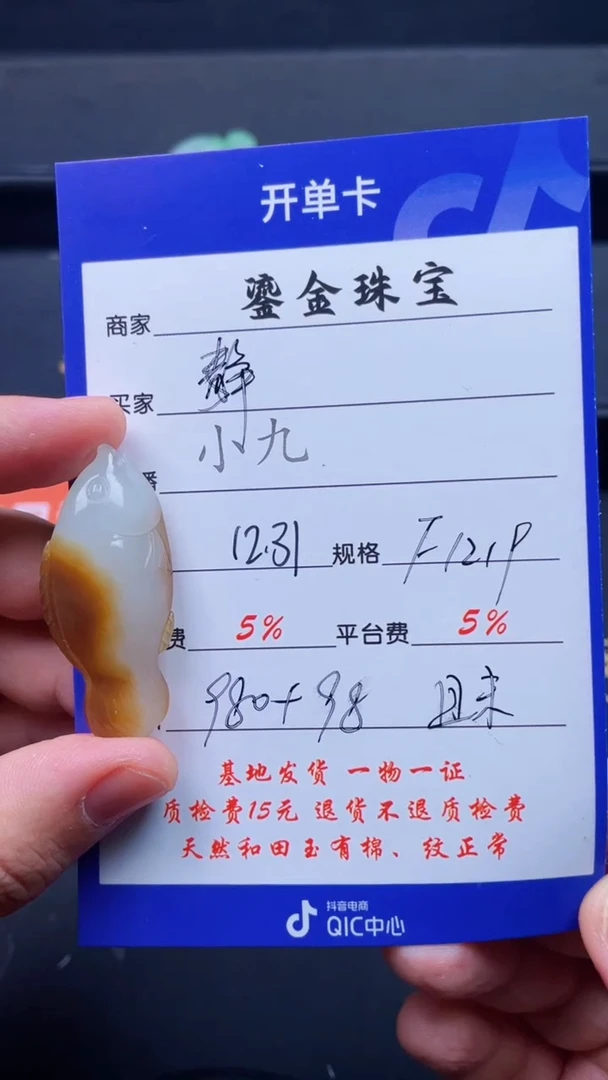 开单卡
商家 鎏金珠宝
买家 静
播 小九
12.31 规格 F121P
费 5% 平台费 5%
980+98 且末
基地发货 一物一证
质检费15元 退货不退质检费
天然和田玉有棉、纹正常
抖音电商
QIC中心